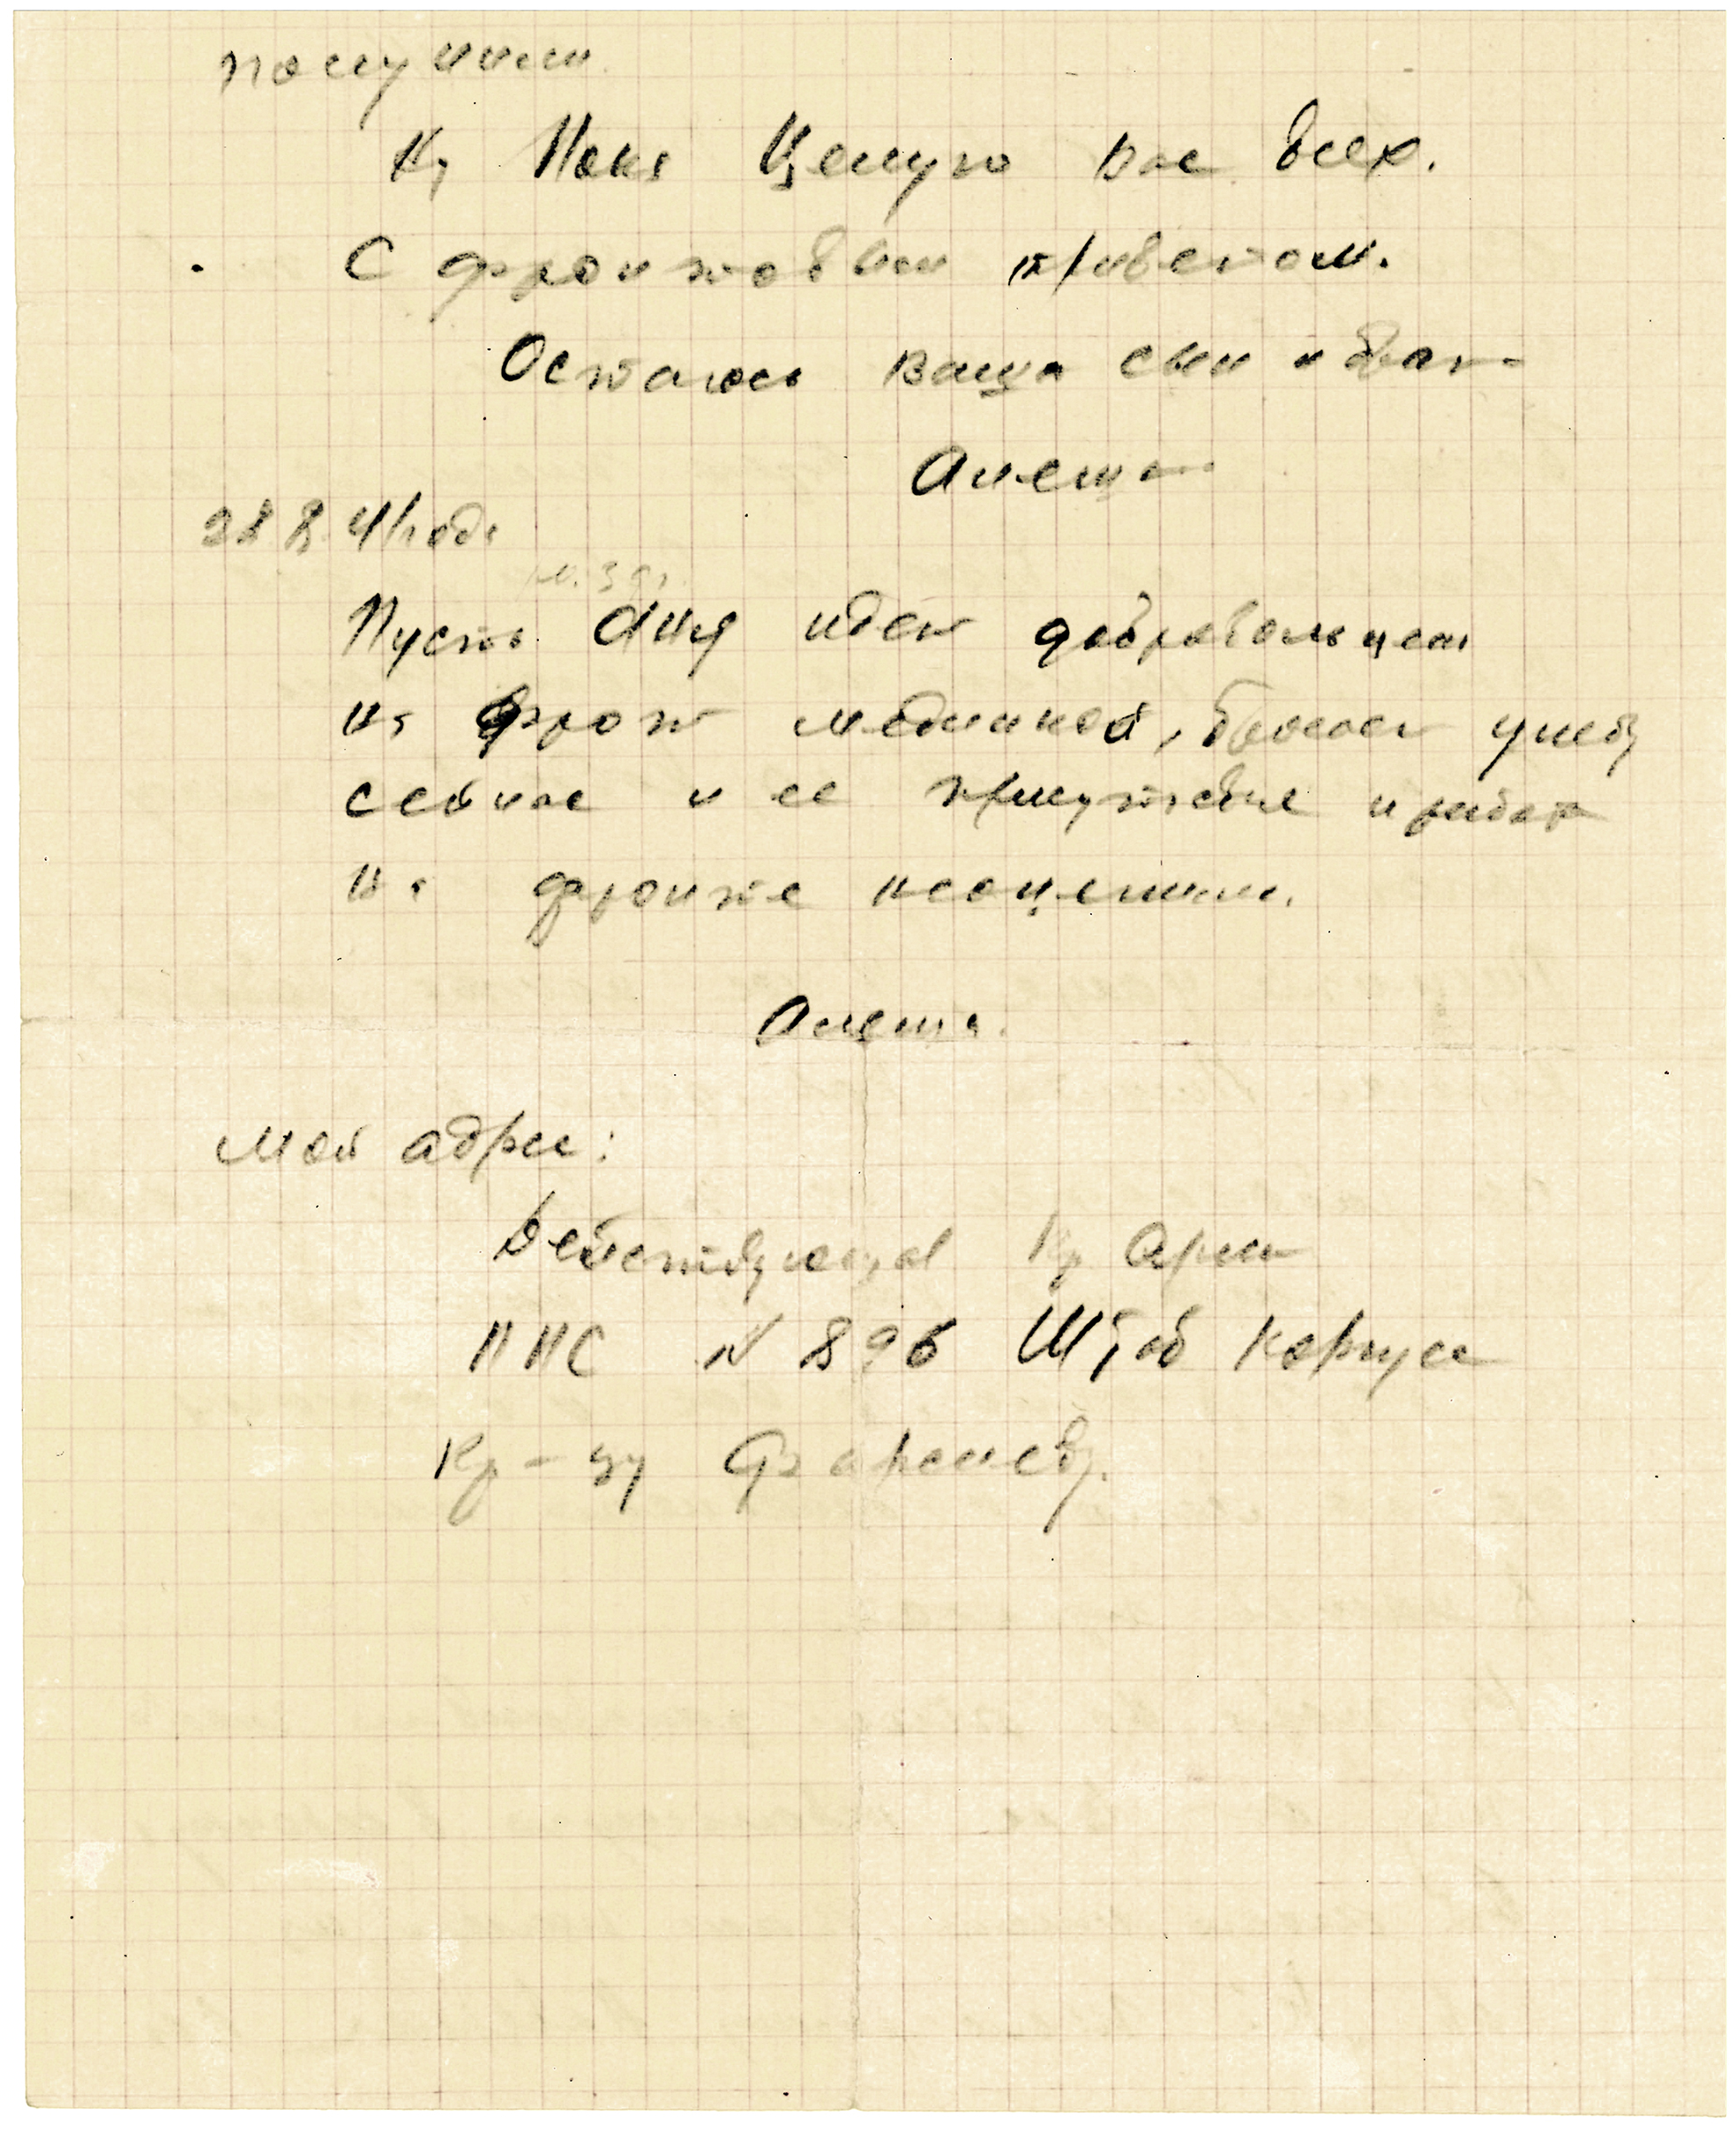 получим.
Ну Пока Целую вас всех.
С фронтовым приветом.
Остаюсь ваш сын и брат
Алеша
28 8. 41 года
Пусть Аня идет добровольцем
на фронт медичкой, бросает учебу
сейчас и ее присутствие и работа
на фронте неоценим.
Алеша.
Мой адрес:
Действующая Кр Армия
ППС N 896 Штаб корпуса
Кр-цу